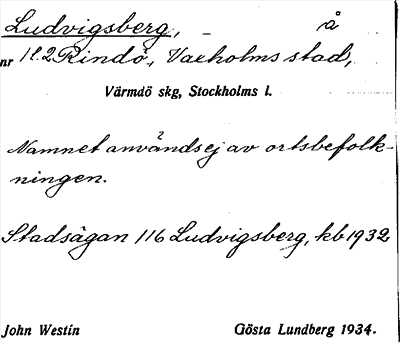 Ludvigsberg, å
nr 1 l. 2 Rindö, Vaxholms stad,
Värmdö skg, Stockholms l.
Namnet användsej av ortsbefolk-
ningen.
Stadsägan 116 Ludvigsberg, kb 1932
John Westin Gösta Lundberg 1934.